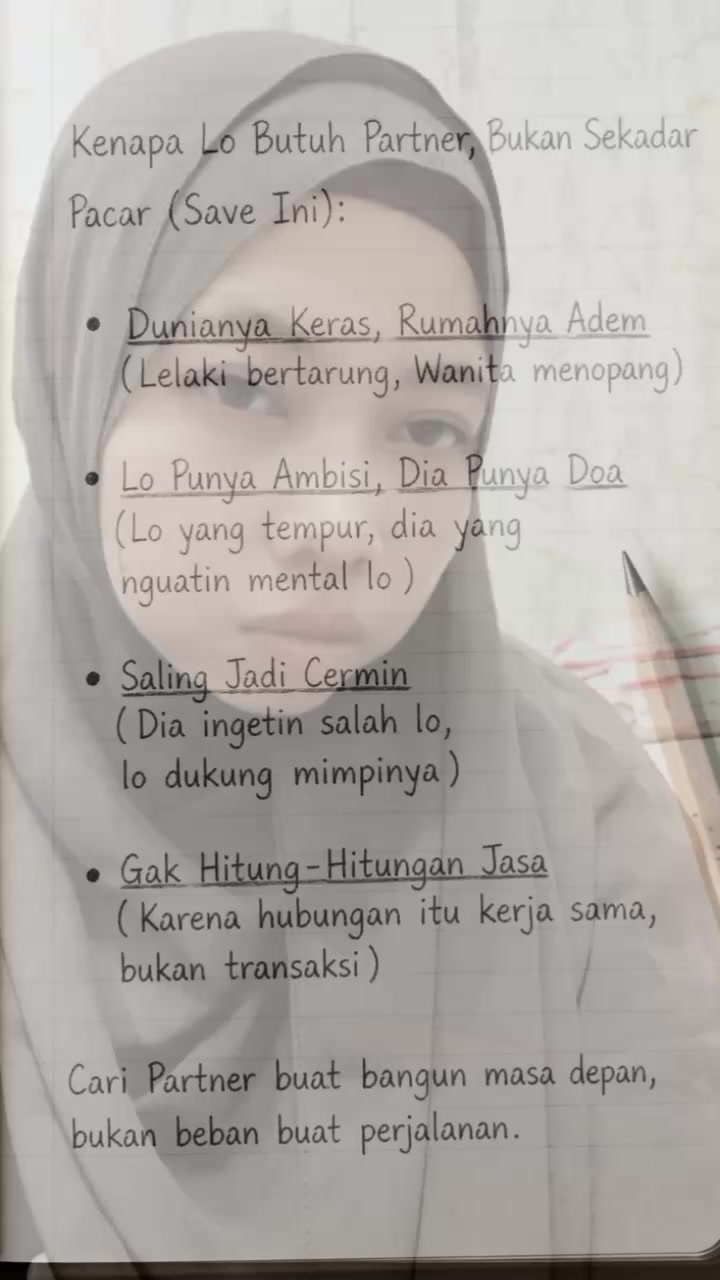 Kenapa Lo Butuh Partner, Bukan Sekadar
Pacar (Save Ini):
• Dunianya Keras, Rumahnya Adem
(Lelaki bertarung, Wanita menopang)
• Lo Punya Ambisi, Dia Punya Doa
(Lo yang tempur, dia yang
nguatin mental lo)
• Saling Jadi Cermin
(Dia ingetin salah lo,
lo dukung mimpinya)
• Gak Hitung-Hitungan Jasa
(Karena hubungan itu kerja sama,
bukan transaksi)
Cari Partner buat bangun masa depan,
bukan beban buat perjalanan.